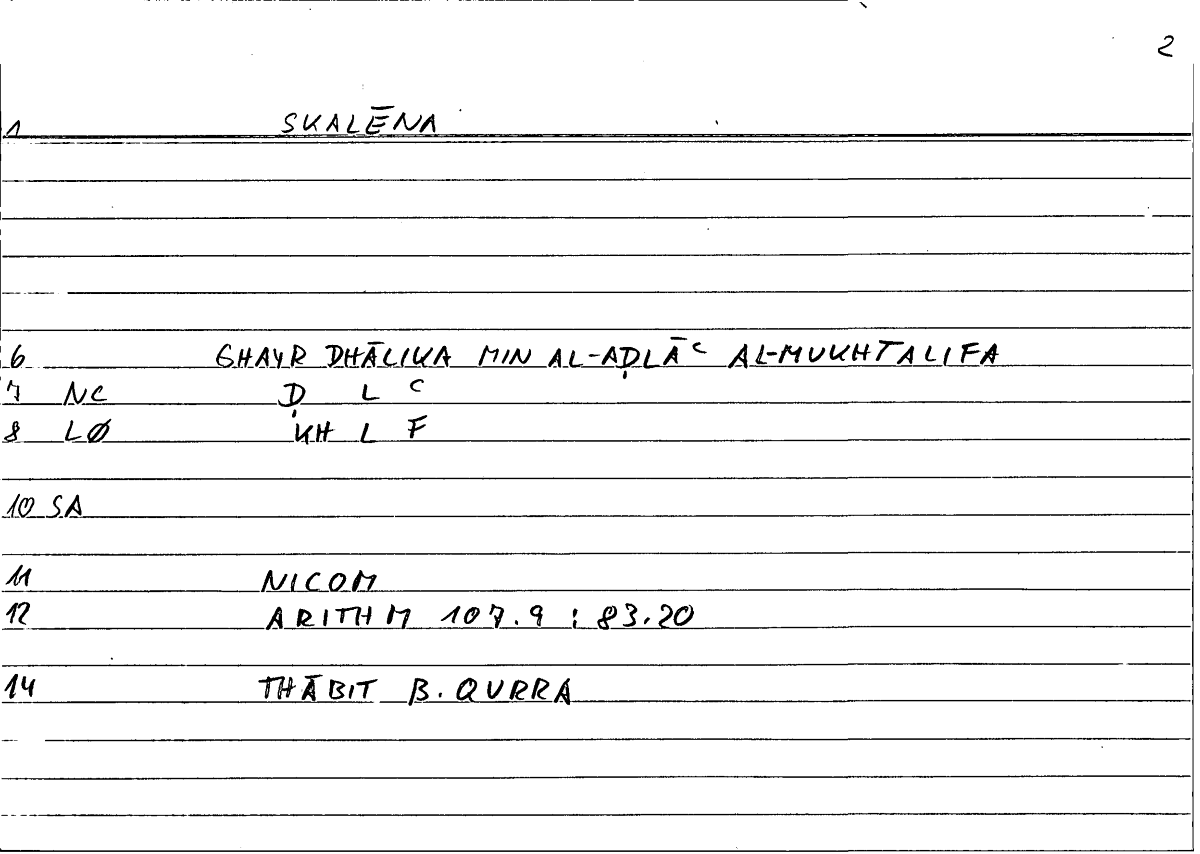 2
1 SKALĒNA
6 GHAYR DHĀLIKA MIN AL-AḌLĀʿ AL-MUKHTALIFA
7 NC Ḍ L ʿ
8 LØ KH L F
10 SA
11 NICOM
12 ARITHM 107.9 : 83.20
14 THĀBIT B. QURRA